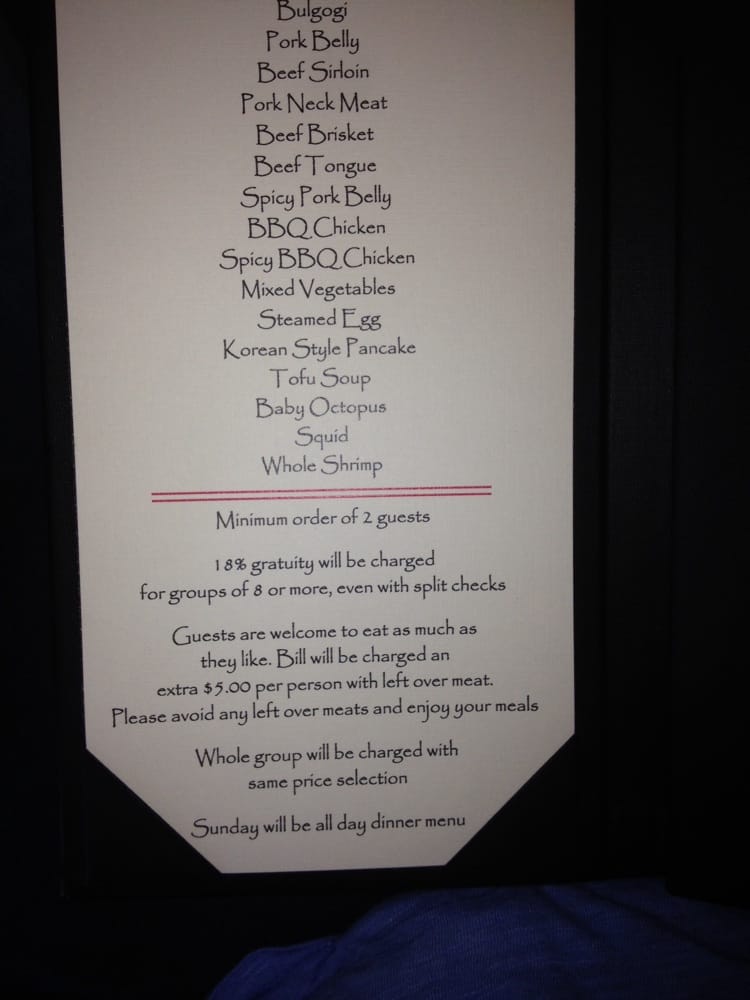 Bulgogi
Pork Belly
Beef Sirloin
Pork Neck Meat
Beef Brisket
Beef Tongue
Spicy Pork Belly
BBQ Chicken
Spicy BBQ Chicken
Mixed Vegetables
Steamed Egg
Korean Style Pancake
Tofu Soup
Baby Octopus
Squid
Whole Shrimp
Minimum order of 2 guests
18% gratuity will be charged
for groups of 8 or more, even with split checks
Guests are welcome to eat as much as
they like. Bill will be charged an
extra $5.00 per person with left over meat.
Please avoid any left over meats and enjoy your meals
Whole group will be charged with
same price selection
Sunday will be all day dinner menu